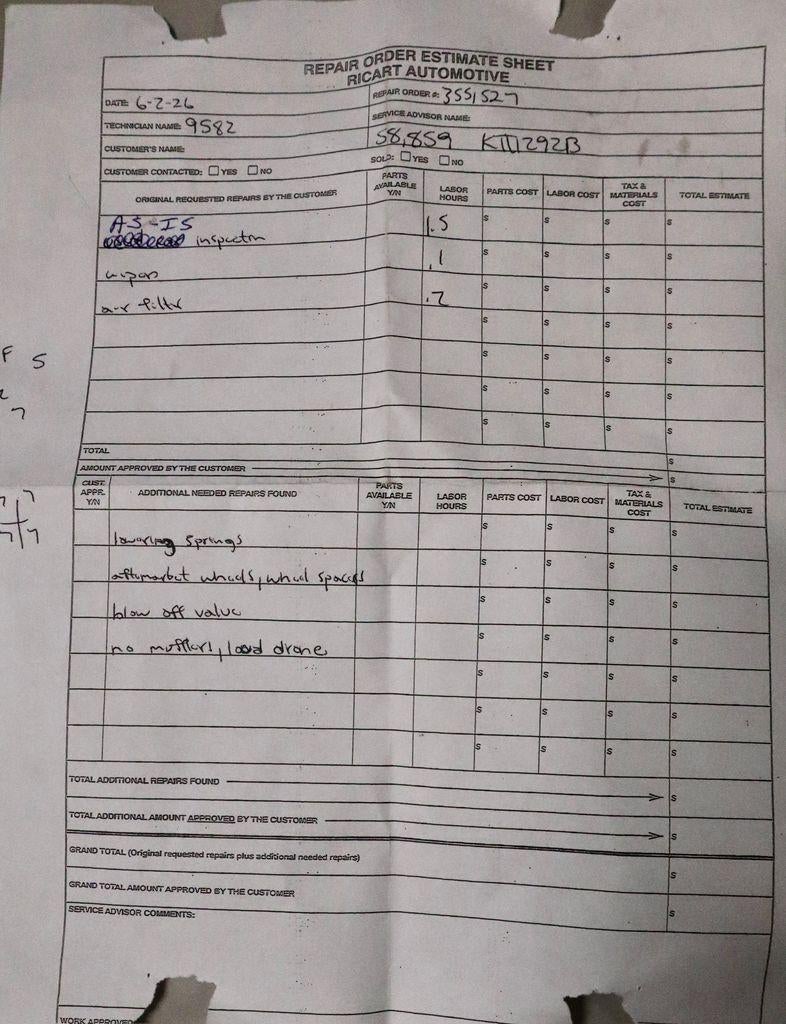 REPAIR ORDER ESTIMATE SHEET
RICART AUTOMOTIVE
DATE: 6-2-26
REPAIR ORDER #: 3551527
TECHNICIAN NAME: 9582
SERVICE ADVISOR NAME:
CUSTOMER'S NAME:
58,859
CUSTOMER CONTACTED: ☐ YES ☐ NO
SOLD: ☐ YES ☐ NO
ORIGINAL REQUESTED REPAIRS BY THE CUSTOMER PARTS AVAILABLE Y/N LABOR HOURS PARTS COST LABOR COST TAX & MATERIALS COST TOTAL ESTIMATE
AS-IS
inspection 1.5 $ $ $ $
.1 $ $ $ $
air filtr .2 $ $ $ $
$ $ $ $
$ $ $ $
$ $ $ $
$ $ $ $
TOTAL $
AMOUNT APPROVED BY THE CUSTOMER $
CUST. APPR. Y/N ADDITIONAL NEEDED REPAIRS FOUND PARTS AVAILABLE Y/N LABOR HOURS PARTS COST LABOR COST TAX & MATERIALS COST TOTAL ESTIMATE
lowering springs $ $ $ $
aftermarket wheels, wheel spacers $ $ $ $
blow off valve $ $ $ $
no mufflers, loud drone $ $ $ $
$ $ $ $
$ $ $ $
$ $ $ $
TOTAL ADDITIONAL REPAIRS FOUND $
TOTAL ADDITIONAL AMOUNT APPROVED BY THE CUSTOMER $
GRAND TOTAL (Original requested repairs plus additional needed repairs) $
GRAND TOTAL AMOUNT APPROVED BY THE CUSTOMER $
SERVICE ADVISOR COMMENTS:
WORK APPROVED